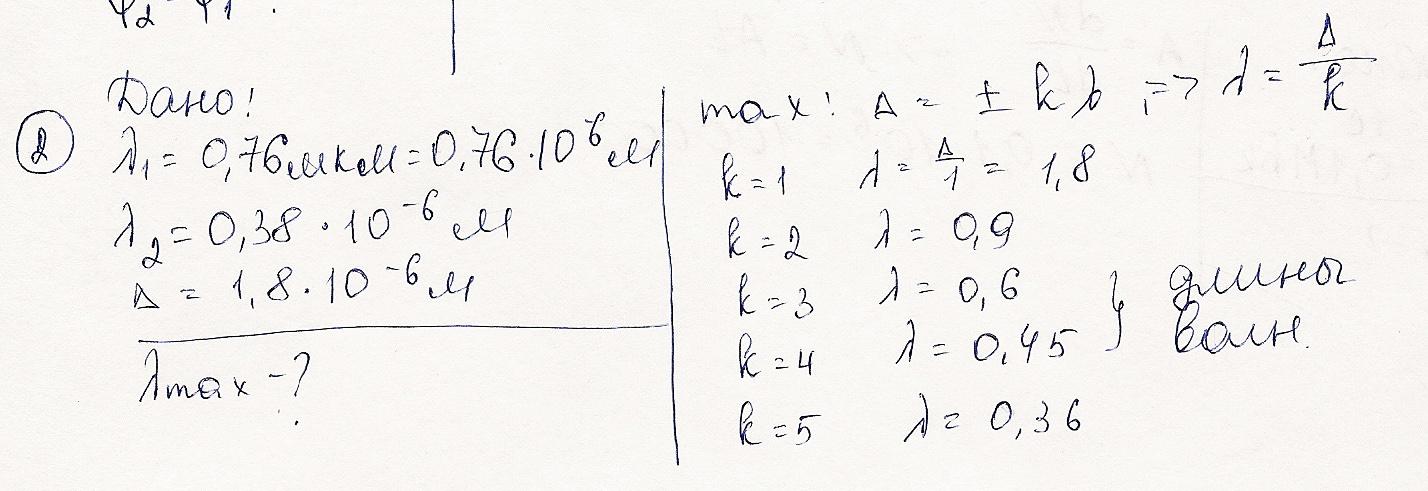 φ₂ - φ₁ .
② Дано!
λ₁ = 0,76 мкм = 0,76 · 10⁻⁶ м
λ₂ = 0,38 · 10⁻⁶ м
Δ = 1,8 · 10⁻⁶ м
λmax - ?
max! Δ = ± k λ , => λ = Δ/k
k = 1 λ = Δ/1 = 1,8
k = 2 λ = 0,9
k = 3 λ = 0,6
k = 4 λ = 0,45 } длины волн.
k = 5 λ = 0,36